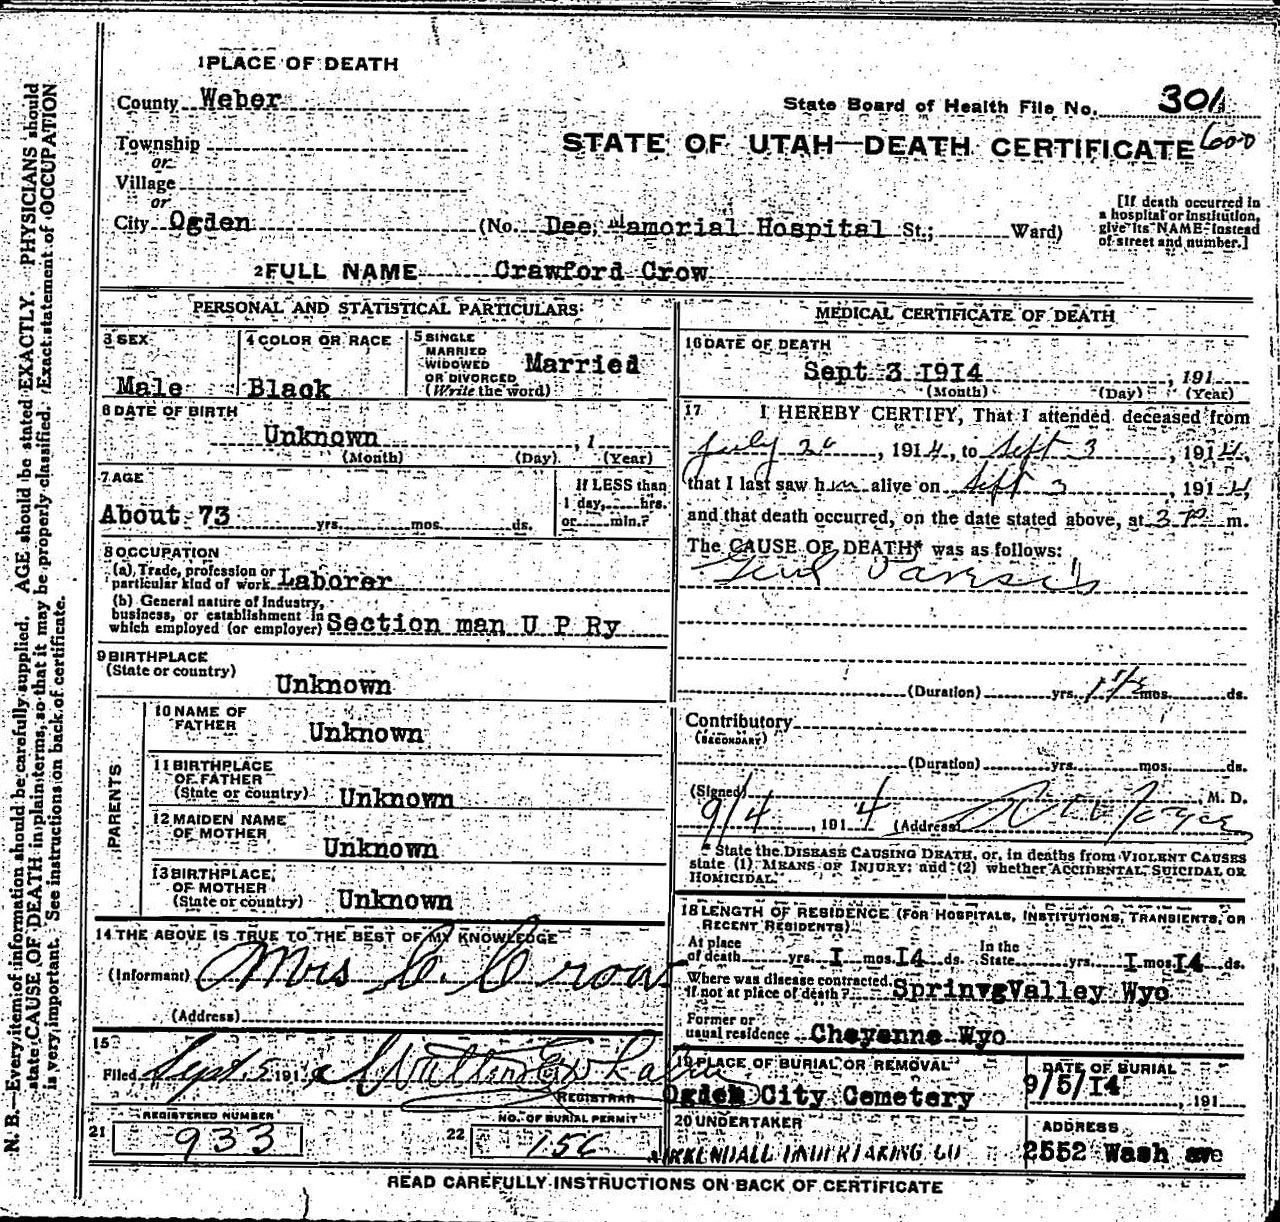 1 PLACE OF DEATH
County Weber
State Board of Health File No. 301
Township
or
STATE OF UTAH—DEATH CERTIFICATE 600
Village
or
City Ogden (No. Dee Mamorial Hospital St.; Ward)
[If death occurred in
a hospital or institution,
give its NAME instead
of street and number.]
2 FULL NAME Crawford Crow
PERSONAL AND STATISTICAL PARTICULARS
3 SEX
Male
4 COLOR OR RACE
Black
5 SINGLE
MARRIED
WIDOWED
OR DIVORCED
(Write the word)
Married
6 DATE OF BIRTH
Unknown , 1
(Month) (Day) (Year)
7 AGE
About 73 yrs. mos. ds.
If LESS than
1 day, hrs.
or min.?
8 OCCUPATION
(a) Trade, profession or
particular kind of work Laborer
(b) General nature of Industry,
business, or establishment in
which employed (or employer) Section man U P Ry
9 BIRTHPLACE
(State or country)
Unknown
PARENTS
10 NAME OF
FATHER
Unknown
11 BIRTHPLACE
OF FATHER
(State or country) Unknown
12 MAIDEN NAME
OF MOTHER
Unknown
13 BIRTHPLACE,
OF MOTHER
(State or country) Unknown
14 THE ABOVE IS TRUE TO THE BEST OF MY KNOWLEDGE
(Informant) Mrs C. Crow
(Address)
15
Filed Sept. 5 191
REGISTRAR
REGISTERED NUMBER
21 933
NO. OF BURIAL PERMIT
22 156
MEDICAL CERTIFICATE OF DEATH
16 DATE OF DEATH
Sept 3 1914 , 191
(Month) (Day) (Year)
17 I HEREBY CERTIFY, That I attended deceased from
July 20, 1914, to Sept 3, 1914,
that I last saw him alive on Sept 3, 1914,
and that death occurred, on the date stated above, at 3 m.
The CAUSE OF DEATH* was as follows:
(Duration) yrs. 1 1/2 mos. ds.
Contributory
(SECONDARY)
(Duration) yrs. mos. ds.
(Signed) , M. D.
9/4, 1914 (Address)
* State the DISEASE CAUSING DEATH, or, in deaths from VIOLENT CAUSES
state (1) MEANS OF INJURY; and (2) whether ACCIDENTAL, SUICIDAL OR
HOMICIDAL.
18 LENGTH OF RESIDENCE (FOR HOSPITALS, INSTITUTIONS, TRANSIENTS, OR
RECENT RESIDENTS)
At place
of death yrs. I mos. I4 ds. In the
State yrs. I mos. I4 ds.
Where was disease contracted,
if not at place of death? SprinvgValley Wyo
Former or
usual residence Cheyenne Wyo
19 PLACE OF BURIAL OR REMOVAL
Ogden City Cemetery
DATE OF BURIAL
9/5/I4 , 191
20 UNDERTAKER
KIRKENDALL UNDERTAKING CO
ADDRESS
2552 Wash ave
READ CAREFULLY INSTRUCTIONS ON BACK OF CERTIFICATE
N. B.—Every item of information should be carefully supplied. AGE should be stated EXACTLY. PHYSICIANS should
state CAUSE OF DEATH in plain terms, so that it may be properly classified. Exact statement of OCCUPATION
is very important. See instructions on back of certificate.